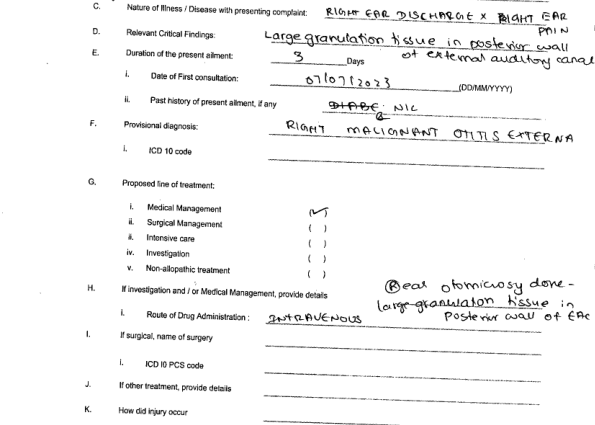 C. Nature of Illness / Disease with presenting complaint: RIGHT EAR DISCHARGE x RIGHT EAR PAIN
D. Relevant Critical Findings: Large granulation tissue in posterior wall of external auditory canal
E. Duration of the present ailment: 3 Days
i. Date of First consultation: 07/07/2023 (DD/MM/YYYY)
ii. Past history of present ailment, if any NIL
F. Provisional diagnosis: RIGHT MALIGNANT OTITIS EXTERNA
i. ICD 10 code
G. Proposed line of treatment:
i. Medical Management (✓)
ii. Surgical Management ( )
ii. Intensive care ( )
iv. Investigation ( )
v. Non-allopathic treatment ( )
H. If investigation and / or Medical Management, provide details (R) ear otomicrosy done - large granulation tissue in Posterior wall of EAC
i. Route of Drug Administration : INTRAVENOUS
I. If surgical, name of surgery
i. ICD I0 PCS code
J. If other treatment, provide details
K. How did injury occur